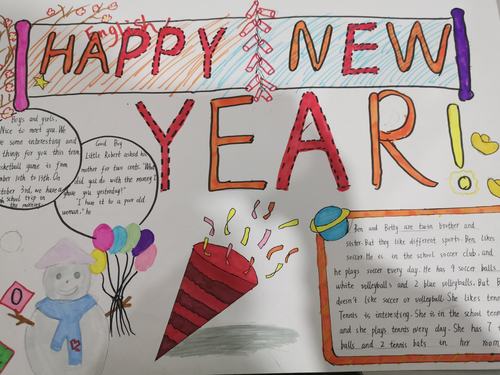 English
HAPPY NEW
YEAR!
Boys and girls,
Nice to meet you. We
some interesting and
things for you this term
basketball game is from
10th to 15th. On
3rd, we have a
school trip in
the morning
Good Boy
Little Robert asked his
mother for two cents. "What
did you do with the money I
gave you yesterday?"
"I have it to a poor old
woman," he
Ben and Betty are twin brother and
sister. But they like different sports. Ben likes
soccer. He is in the school soccer club. and
he plays soccer every day. He has 9 soccer balls.
white volleyballs and 2 blue volleyballs. But B
doesn't like soccer or volleyball. She likes tennis
Tennis is interesting. She is in the school tennis
and she plays tennis every day. She has 7
balls and 2 tennis bats in her room
0